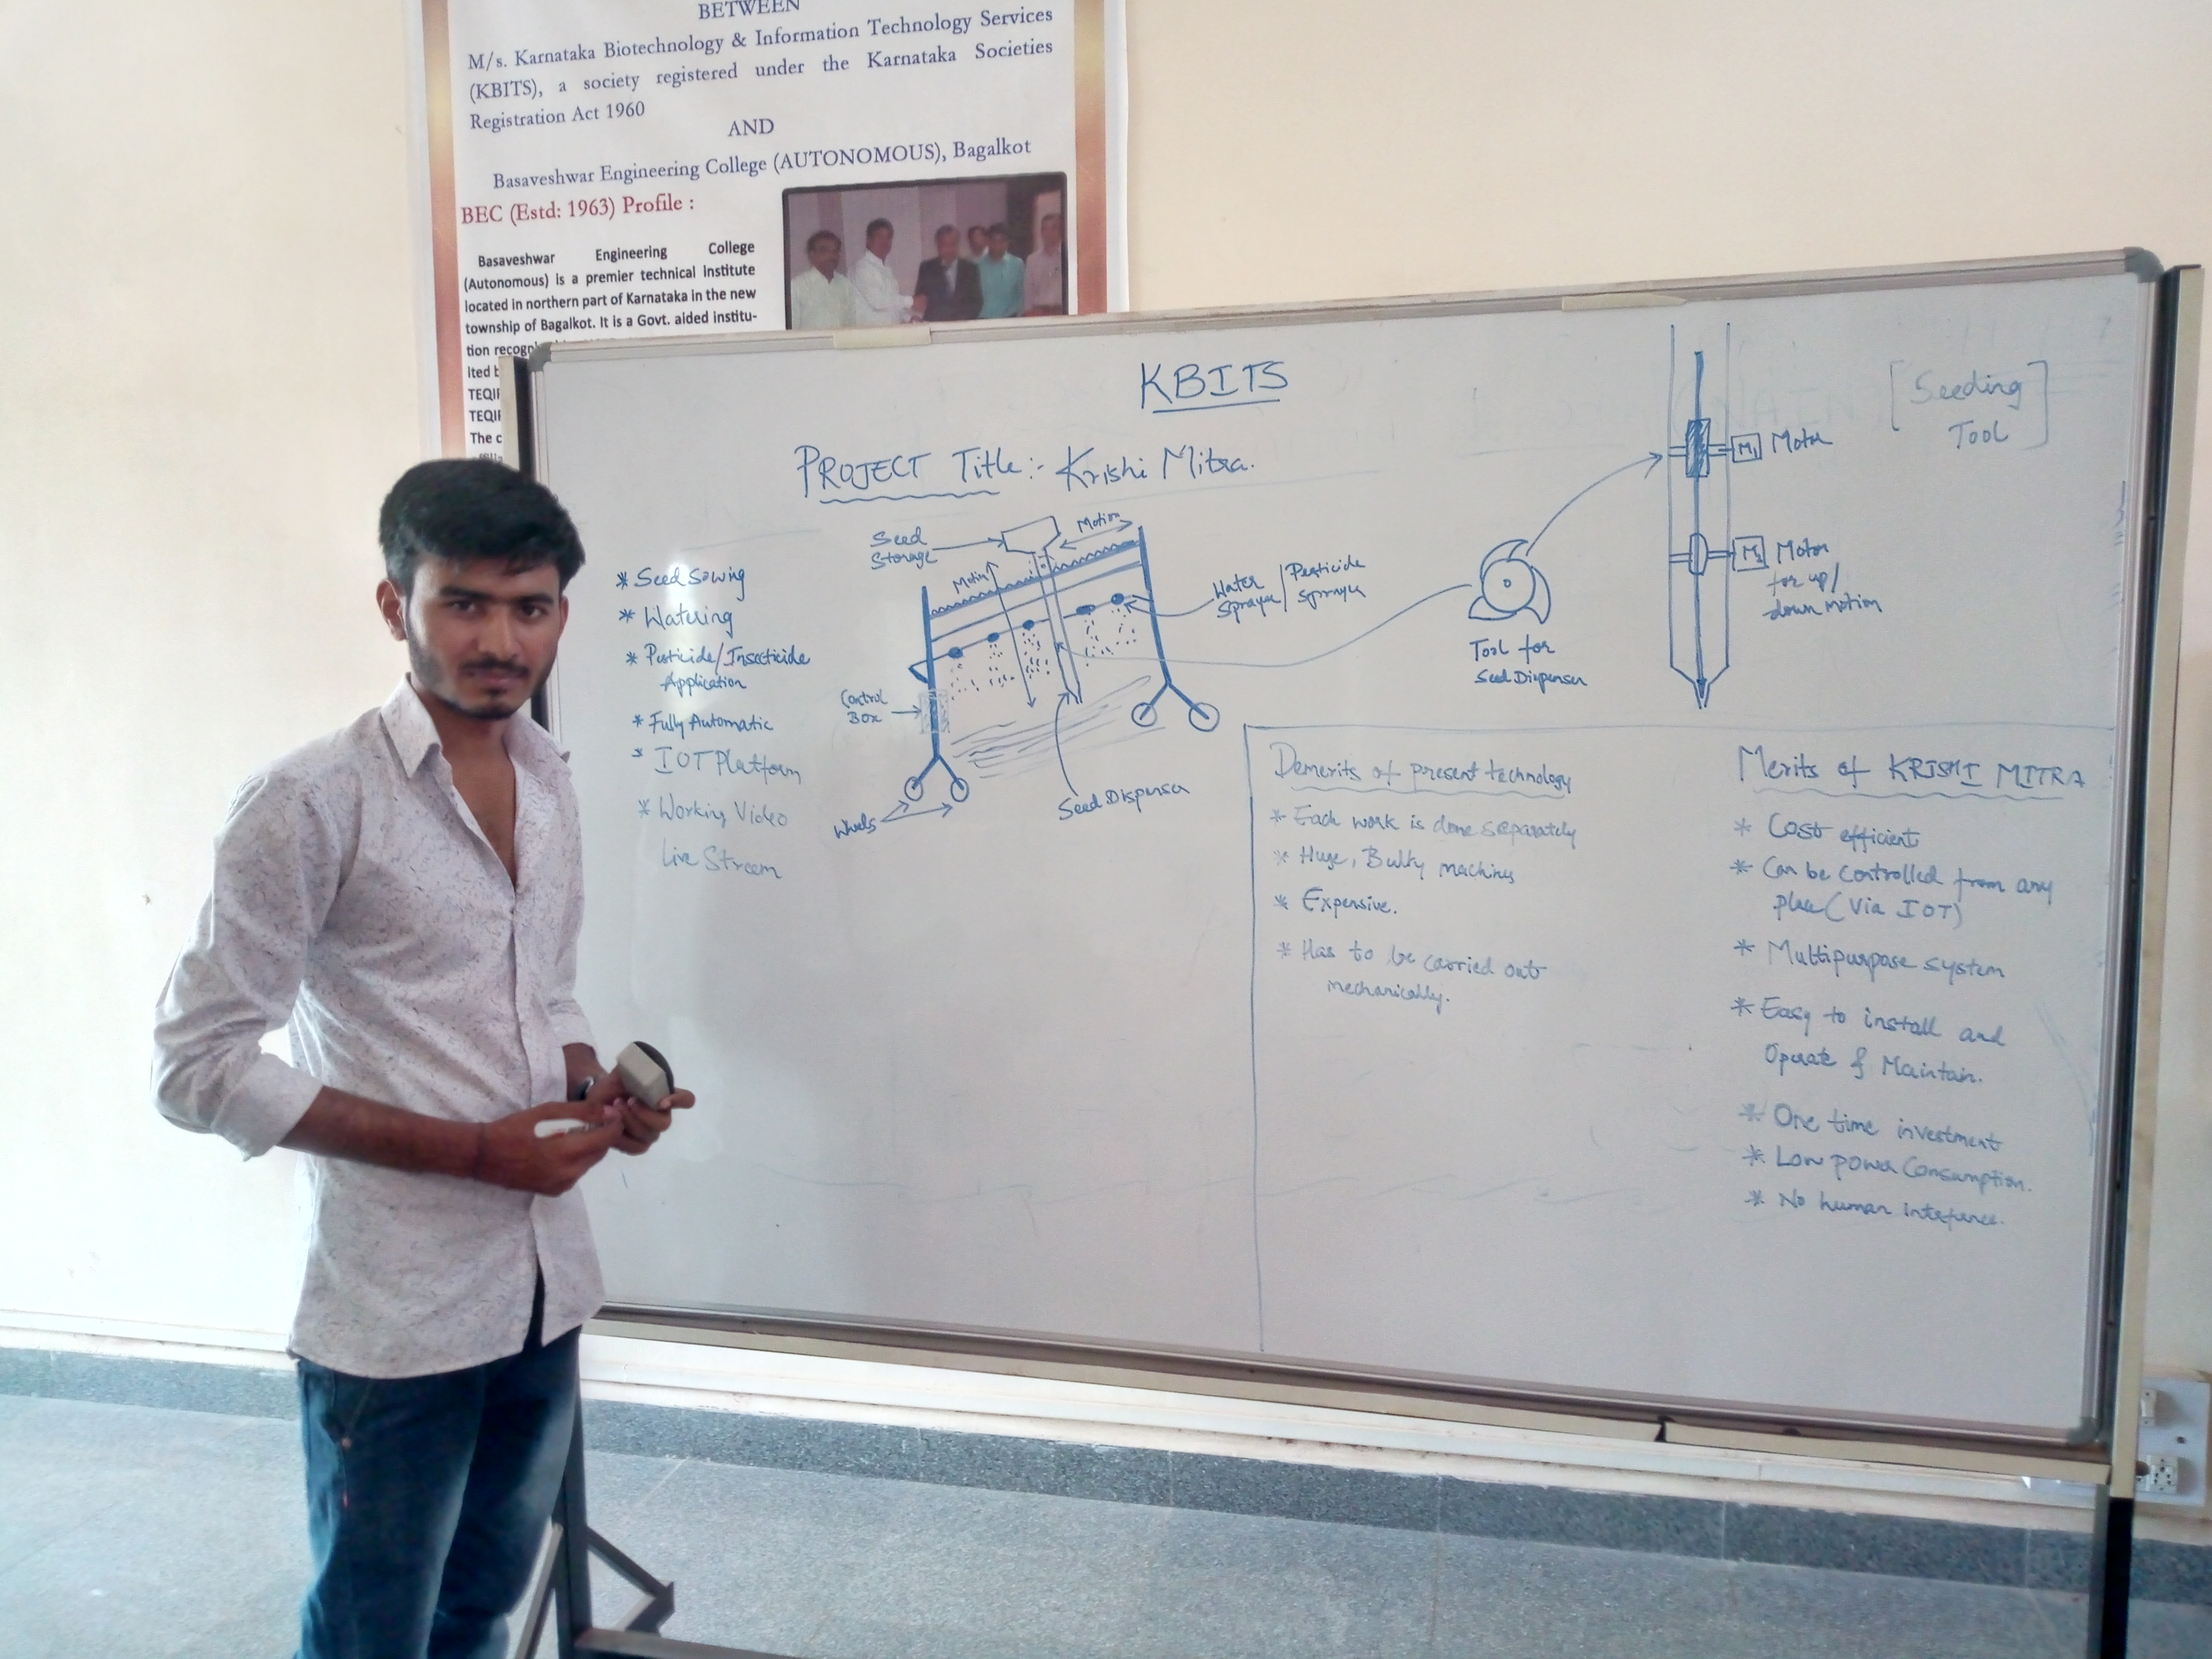 BETWEEN
M/s. Karnataka Biotechnology & Information Technology Services
(KBITS), a society registered under the Karnataka Societies
Registration Act 1960
AND
Basaveshwar Engineering College (AUTONOMOUS), Bagalkot
BEC (Estd: 1963) Profile :
Basaveshwar Engineering College
(Autonomous) is a premier technical institute
located in northern part of Karnataka in the new
township of Bagalkot. It is a Govt. aided institu-
tion
TEQI
TEQI
The c
KBITS
PROJECT Title :- Krishi Mitra.
* Seed Sowing
* Watering
* Pesticide/Insecticide
Application
* Fully Automatic
* IOT Platform
* Working Video
Live Stream
Seed
Storage
Motion
Motion
Water
Sprayer
/
Pesticide
Sprayer
Control
Box
Wheels
Seed Dispenser
Tool for
Seed Dispenser
M1 Motor
M2 Motor
for up/
down motion
[Seeding
Tool]
Demerits of present technology
* Each work is done separately
* Huge, Bulky machines
* Expensive.
* Has to be carried out
mechanically.
Merits of KRISHI MITRA
* Cost efficient
* Can be controlled from any
place (Via IOT)
* Multipurpose system
* Easy to install and
Operate & Maintain.
* One time investment
* Low power Consumption.
* No human inteference.